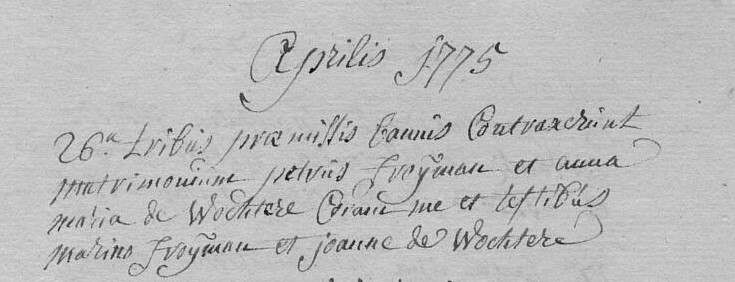 Aprilis 1775
26a tribus præmissis bannis Contraxerunt
matrimonium petrus Froÿman et anna
maria de Wochtere Coram me et testibus
marino Froÿman et joanne de Wochtere